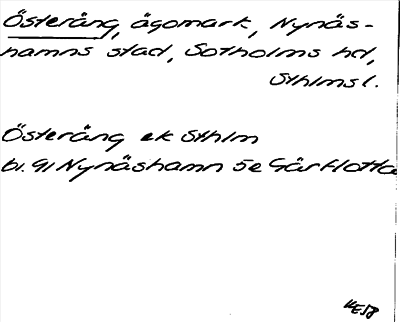 Österäng, ägomark, Nynäs-
hamns stad, Sotholms hd,
Sthlms l.
Österäng ek Sthlm
bl. 91 Nynäshamn 5e Gårflotta